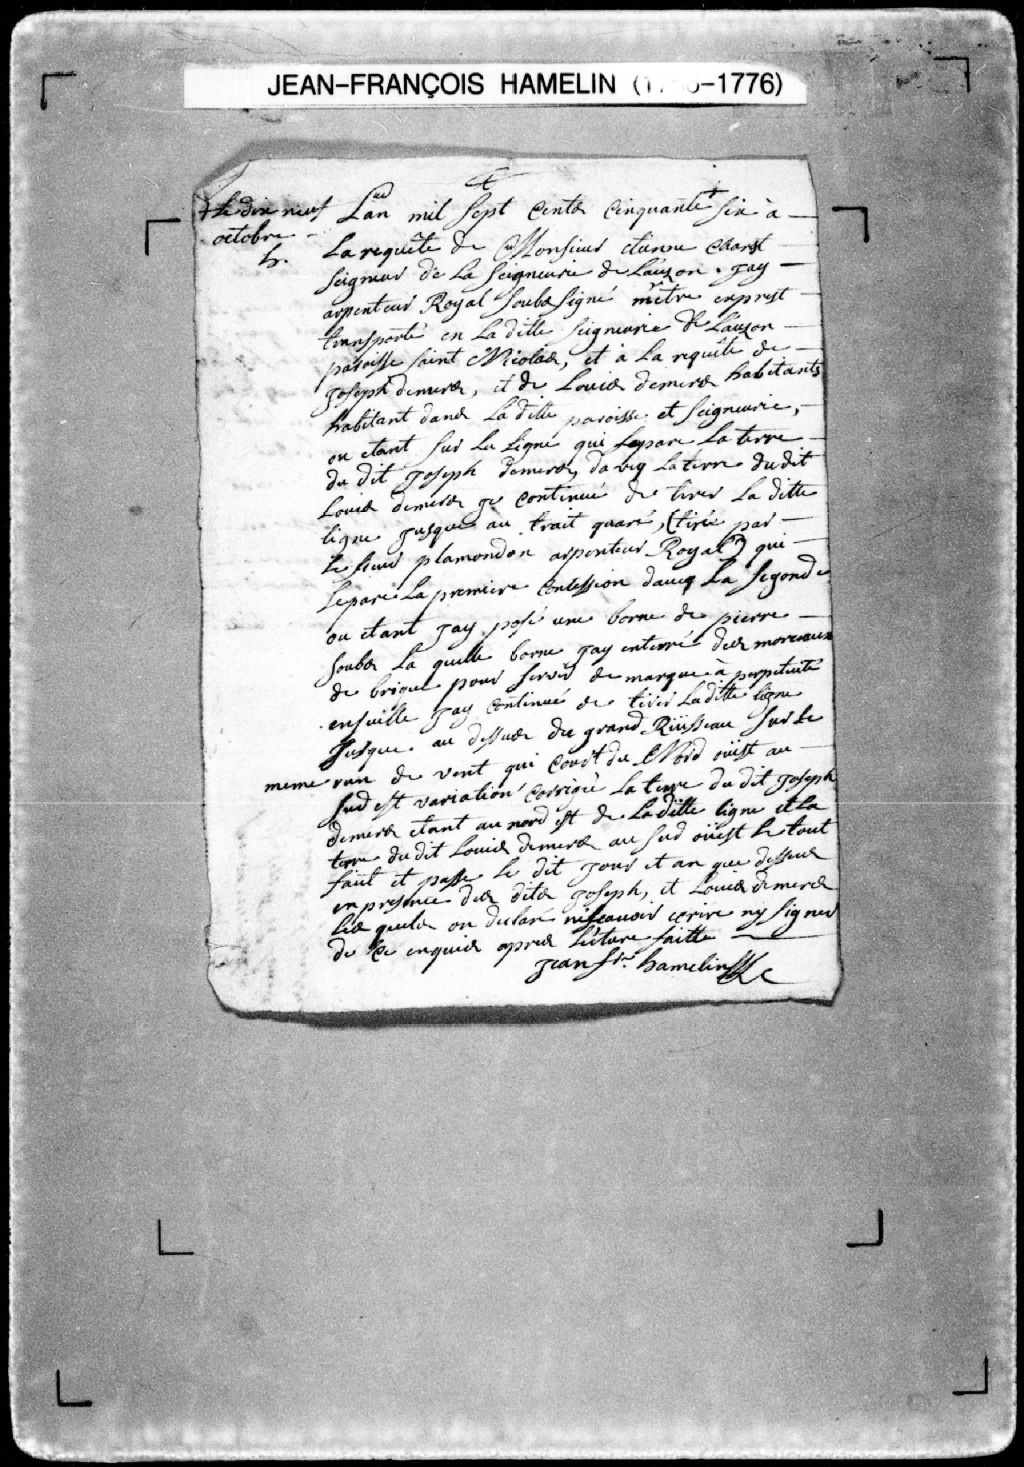 JEAN-FRANÇOIS HAMELIN (17 -1776)
+ le dix neuf
octobre
h.
L'an mil sept cents cinquante + six à
La requête de Monsieur etienne charest
seigneur de La seigneurie de Lauzon. jay
arpenteur Royal soubs signé m'être exprest
transporté en La ditte seigneurie de Lauzon
paroisse saint Nicolas, et à La requête de
joseph demers, et de Louis demers habitants
habitant dans La ditte paroisse et seigneurie,
ou etant sur La Ligne qui separe La terre
du dit joseph demers, daveq La terre du dit
Louis demers je continué de tirer La ditte
ligne jusque au trait quaré, (tirée par
Le sieur plamondon arpenteur Royal) qui
separe La premiere consession daveq La segonde
ou etant jay posé une borne de pierre
soubs La quelle borne jay enterré des morceaux
de brique pour servir de marque à perpetuité
ensuitte jay continué de tirer La ditte ligne
jusque au dessus du grand Ruisseau sur Le
meme run de vent qui court du Nord oüest au
sud est variation corrigée La terre du dit joseph
demers etant au nord est de La ditte ligne et La
terre du dit Louis demers au sud oüest Le tout
fait et passe Le dit jour et an que dessus
en presence des dits joseph, et Louis demers
Les quels on declaré ne sçavoir ecrire ny signer
de ce enquis apres Lecture faitte
jean frs hamelin